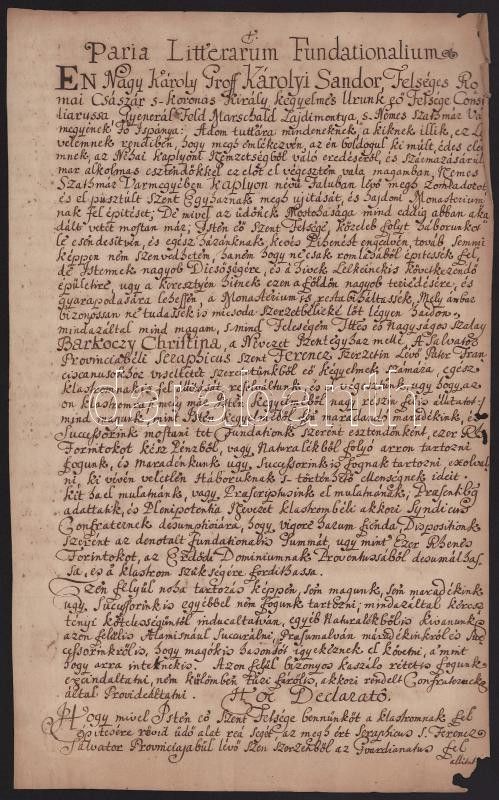 Paria Litterarum Fundationalium
EN Nagy Károly Groff Károlyi Sandor, Felséges Ro
mai Császár s-koronas Király kegyelmes Urunk eő Felsége Consi
liarussa Gyenerál Feld Marschald Lajdimontya, s-Nemes Szathmár Va
megyének Fő Ispánya: Adom tuttára mindeneknek, a kiknek illik, ez Le
velemnek rendiben, hogy megh emlékezvén, az én boldogul ki múlt, édes ele
imnek, az Néhai Kaplyoni Nemzetségből való eredéséről, és származásárúl
mar alkolmas esztendőkkel ez előt el végeztem vala magamban, Nemes
Szathmár Varmegyében Kaplyon nevű Faluban lévő megh romladozot
és el púsztúlt Szent Egyháznak megh ujitását, és hajdoni Monasterium
nak fel épitését; De mivel az üdőknek Mostohasága mind eddig abban aka
dált vetét mostan már; Isten eő Szent Felsége, közeleb folyt háborúnkot
le csendesitvén, és egész házánknak, kevés Pihenést engedvén, továb semmi
képpen ném szenvedhetém, haném hogy ne csak romlásából épitessék fel,
de Istennek nagyob Dicsőségére, és a hivek Lelkeinekis következendő
épületire, ugy a keresztyén hitnek ezen a földön nagyob terjedésére, és
gyarapodására lehessen, a Monasteriumis restabiliáltassék. Mely ámbár
bizonyossan né tudassékis micsoda szerzetbélieké lőt légyen hajdon
mindazáltal mind magam, s-mind Feleségem Ittes és Nagyságos szalay
Barkoczy Christina, a Nevezet Szentegyház mellé, A Salvator
Provinciabéli Seraphicus Szent Ferencz Szerzetin Lévő Páter Fran
ciscanusokhoz viseltetett szeretetünkből eő kegyelmek számára, egész
klastromnakis fel állitását resolváltunk, és el végeztünk, ugy hogy, az
on klastromra, mely már Isten kegyelméből nagy részin fel is állitatot:
mind magunk, mint Isten kegyelméből lévő maradandó maradékink, és
Successorink mostani tet Fundationk szerént esztendőnként, ezer Rh.
Forintokot kész Pénzből, vagy Naturalékból folyó arron tartozni
fogunk, és maradékunk ugy, Successorink is fognak tartozni exolval
ni, ki vévén véletlén Háborúknak s-történhető ellenségnek ideit.
kit ha el mulatnánk, vagy Praescriptusink el mulatnának, Praesentibg
adattatik, és Plenipotentia Nevezet klastrombéli akkori Syndicus
Confraternek desumptiojára, hogy, vigore harum fienda Dispositionis
Szerént az denotált Fundationalis Summát, ugy mint Ezer Rhénes
Forintokot, az Ecsédi Dominiumnak Proventussából desumálhas
sa, és a klastrom szükségére fordithassa.
Ezen felyűl noha tartozás képpen, sem magunk, sem maradékink
ugy, Sucessorink is egyébbel ném fogunk tartozni; mindazáltal keresz
tényi kötelességüntől inducaltatván, egyéb Naturalékbólis kivanunk
azon felűlis Alamisnáúl Succurálni, Praesumalván maradékinkrólis Suc
cessorinkrólis, hogy magokis hasonlót igyekéznek el követni, a mint
hogy arra intetnekis. Azon felűl bizonyos kaszáló rétetis fogunk
excindáltatni, nem külömben
által Provideáltatni. Hoc Declarato.
Hogy mivel Isten eő Szent Felsége bennünköt a klastromnak fel
épitésére rövid üdő alat reá segét, az megh ért Seraphicus S. Ferencz
Salvator Provinciájabúl lévő szen szerzénből az Gvardianatus fel
állitat